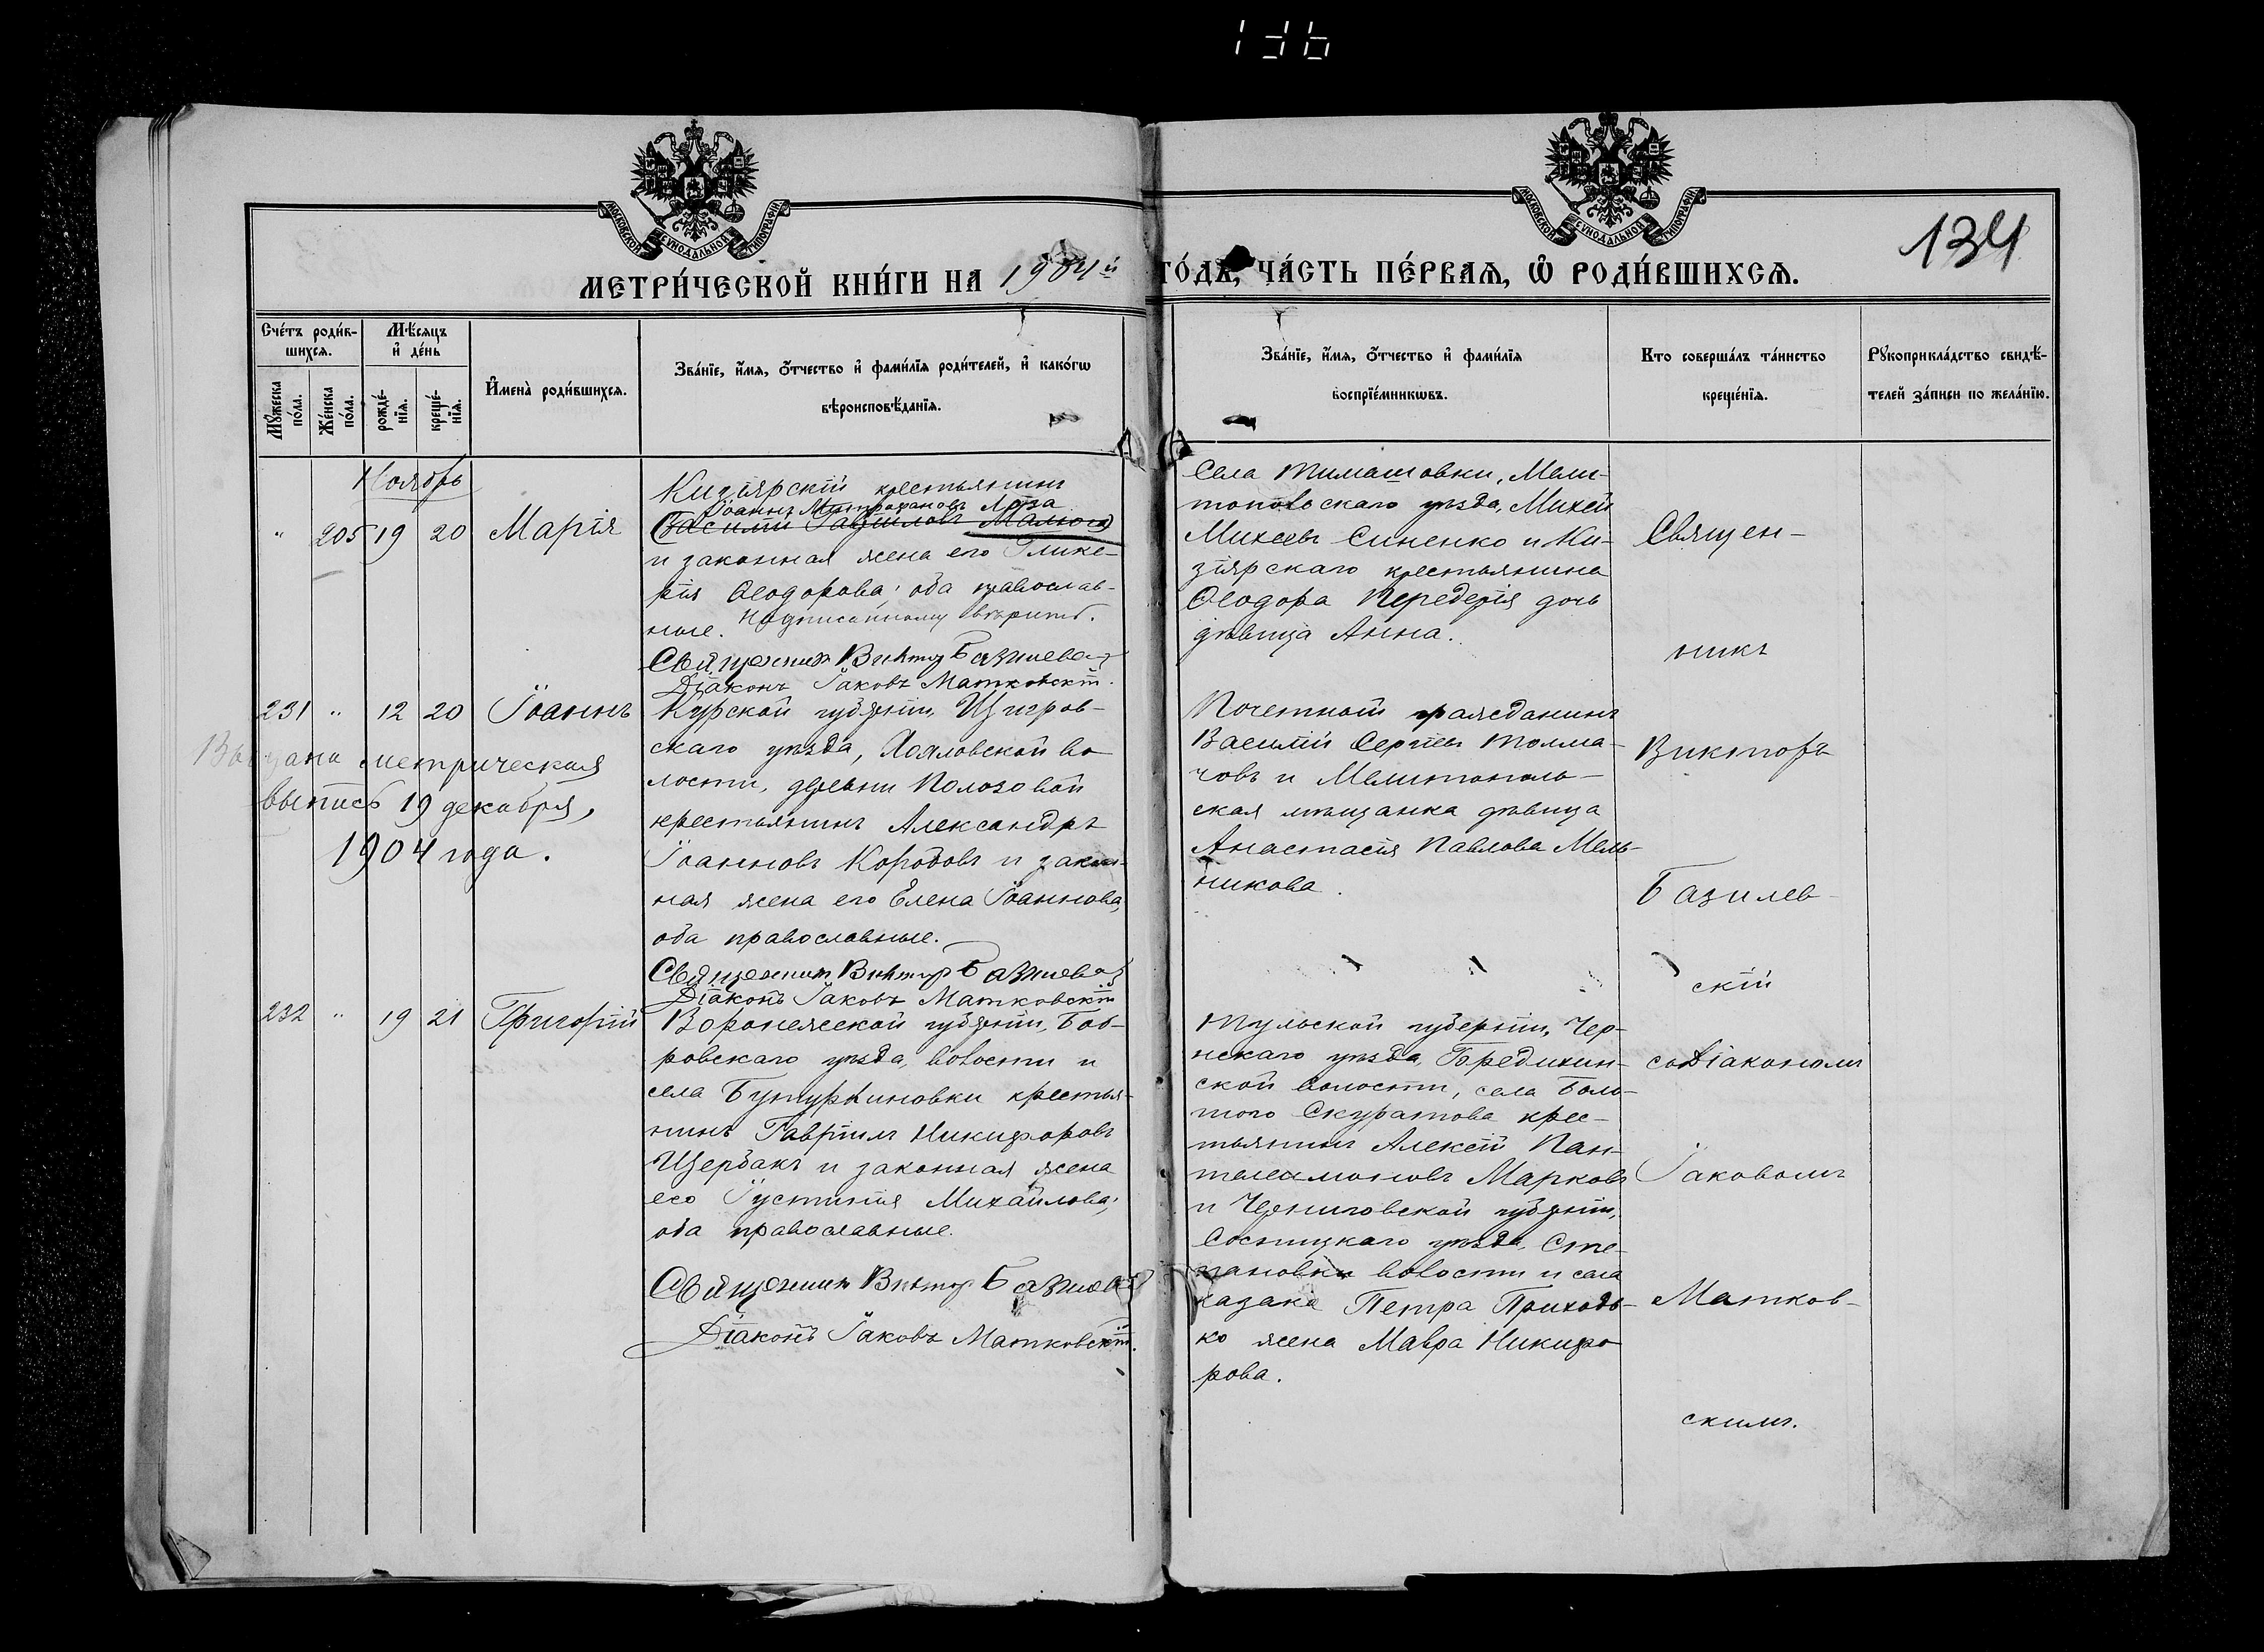 136
МОСКОВСКОЙ СѴНОДАЛЬНОЙ ТИПОГРАФІИ
МОСКОВСКОЙ СѴНОДАЛЬНОЙ ТИПОГРАФІИ
134
МЕТРИ́ЧЕСКОЙ КНИ́ГИ НА 1904й ГО́ДЪ, ЧА́СТЬ ПЕ́РВАѦ, Ѡ҆ РОДИ́ВШИХСѦ.
Сче́тъ роди́в-
шихсѧ.
Мꙋ́жеска по́ла.
Же́нска по́ла.
Мѣ́сѧцъ
и҆ де́нь
рожде́-
нїѧ.
креще́-
нїѧ.
И҆мена̀ роди́вшихсѧ.
Зва́нїе, и҆́мѧ, о҆́тчество и҆ фами́лїѧ роди́телей, и҆ како́гѡ
вѣроисповѣ́данїѧ.
Зва́нїе, и҆́мѧ, о҆́тчество и҆ фами́лїѧ
воспрїе́мникѡвъ.
Кто соверша́лъ та́инство
креще́нїѧ.
Рꙋкоприкла́дство свидѣ́-
телей за́писи по жела́нїю.
Ноябрь
" 205 19 20 Марія
Кизіярскій крестьянинъ
Іоаннъ Митрофановъ Лоза
(Василій Гавриловъ Малюга)
и законная жена его Глике-
рія Ѳеодорова; оба православ-
ные. Надписанному вѣрить.
Священник Виктор Базилевск
Діаконъ Іаковъ Матковскій.
Села Тимашовки, Мели-
топольскаго уѣзда, Михей
Михеевъ Синенко и Ки-
зіярскаго крестьянина
Ѳеодора Передерія дочь
дѣвица Анна.
Священ-
никъ
231 " 12 20 Іоаннъ
Выдана метрическая
выпись 19 декабря,
1904 года.
Курской губерніи, Щигров-
скаго уѣзда, Хохловской во
лости, деревни Полозовой
крестьянинъ Александръ
Іоанновъ Коробовъ и закон-
ная жена его Елена Іоаннова,
оба православные.
Священник Виктор Базилевск
Діаконъ Іаковъ Матковскій
Почетный гражданинъ
Василій Сергѣевъ Толма-
човъ и Мелитополь-
ская мѣщанка дѣвица
Анастасія Павлова Мель-
никова.
Викторъ
Базилев-
скій
232 " 19 21 Григорій
Воронежской губерніи, Боб-
ровскаго уѣзда, волости и
села Бутурлиновки крестья-
нинъ Гавріилъ Никифоровъ
Щербакъ и законная жена
его Іустинія Михайлова;
оба православные.
Священник Виктор Базилевск
Діаконъ Іаковъ Матковскій.
Тульской губерніи, Чер-
нскаго уѣзда, Бредихин-
ской волости, села Боль-
шого Скуратова крес-
тьянинъ Алексѣй Пан-
телеимоновъ Марковъ
и Черниговской губерніи,
Сосницкаго уѣзда, Сте-
пановки волости и села
казака Петра Приходь-
ко жена Мавра Никифо
рова.
съ Діакономъ
Іаковомъ
Матков-
скимъ.